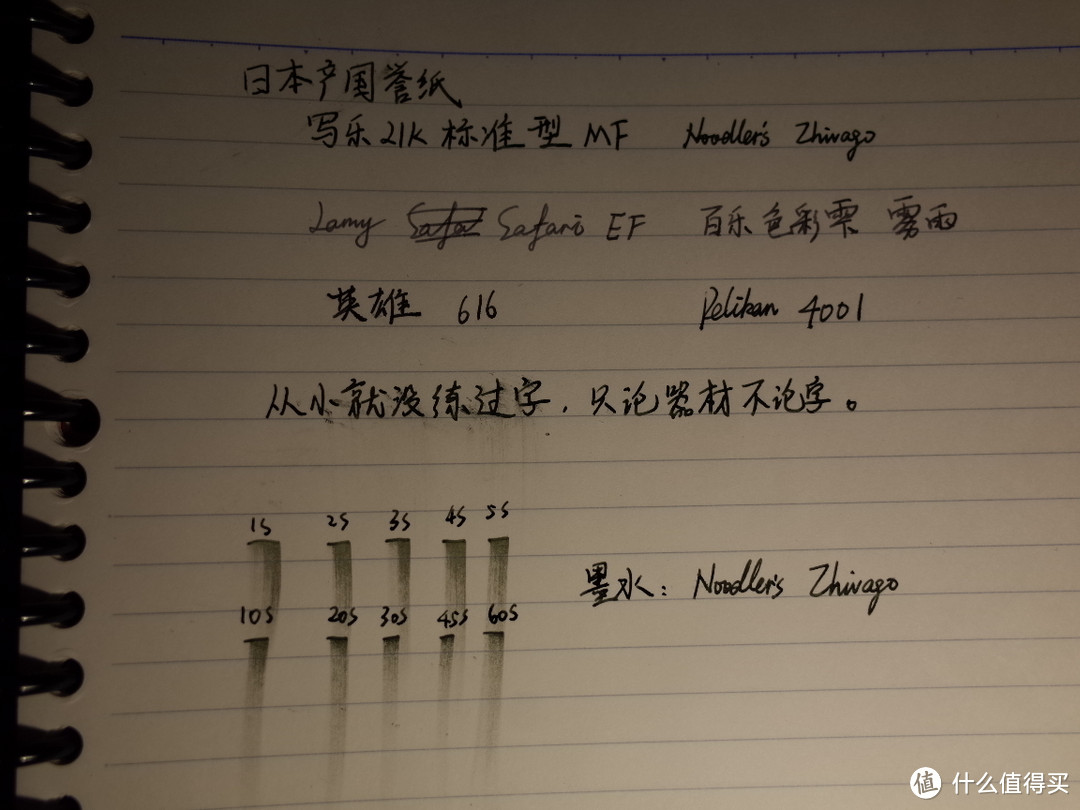 日本产国誉纸
写乐21K标准型MF Noodler's Zhivago
Lamy Safari EF 百乐色彩雫 雾雨
英雄 616 Pelikan 4001
从小就没练过字，只论器材不论字。
1S 2S 3S 4S 5S
墨水：Noodler's Zhivago
10S 20S 30S 45S 60S
值 什么值得买